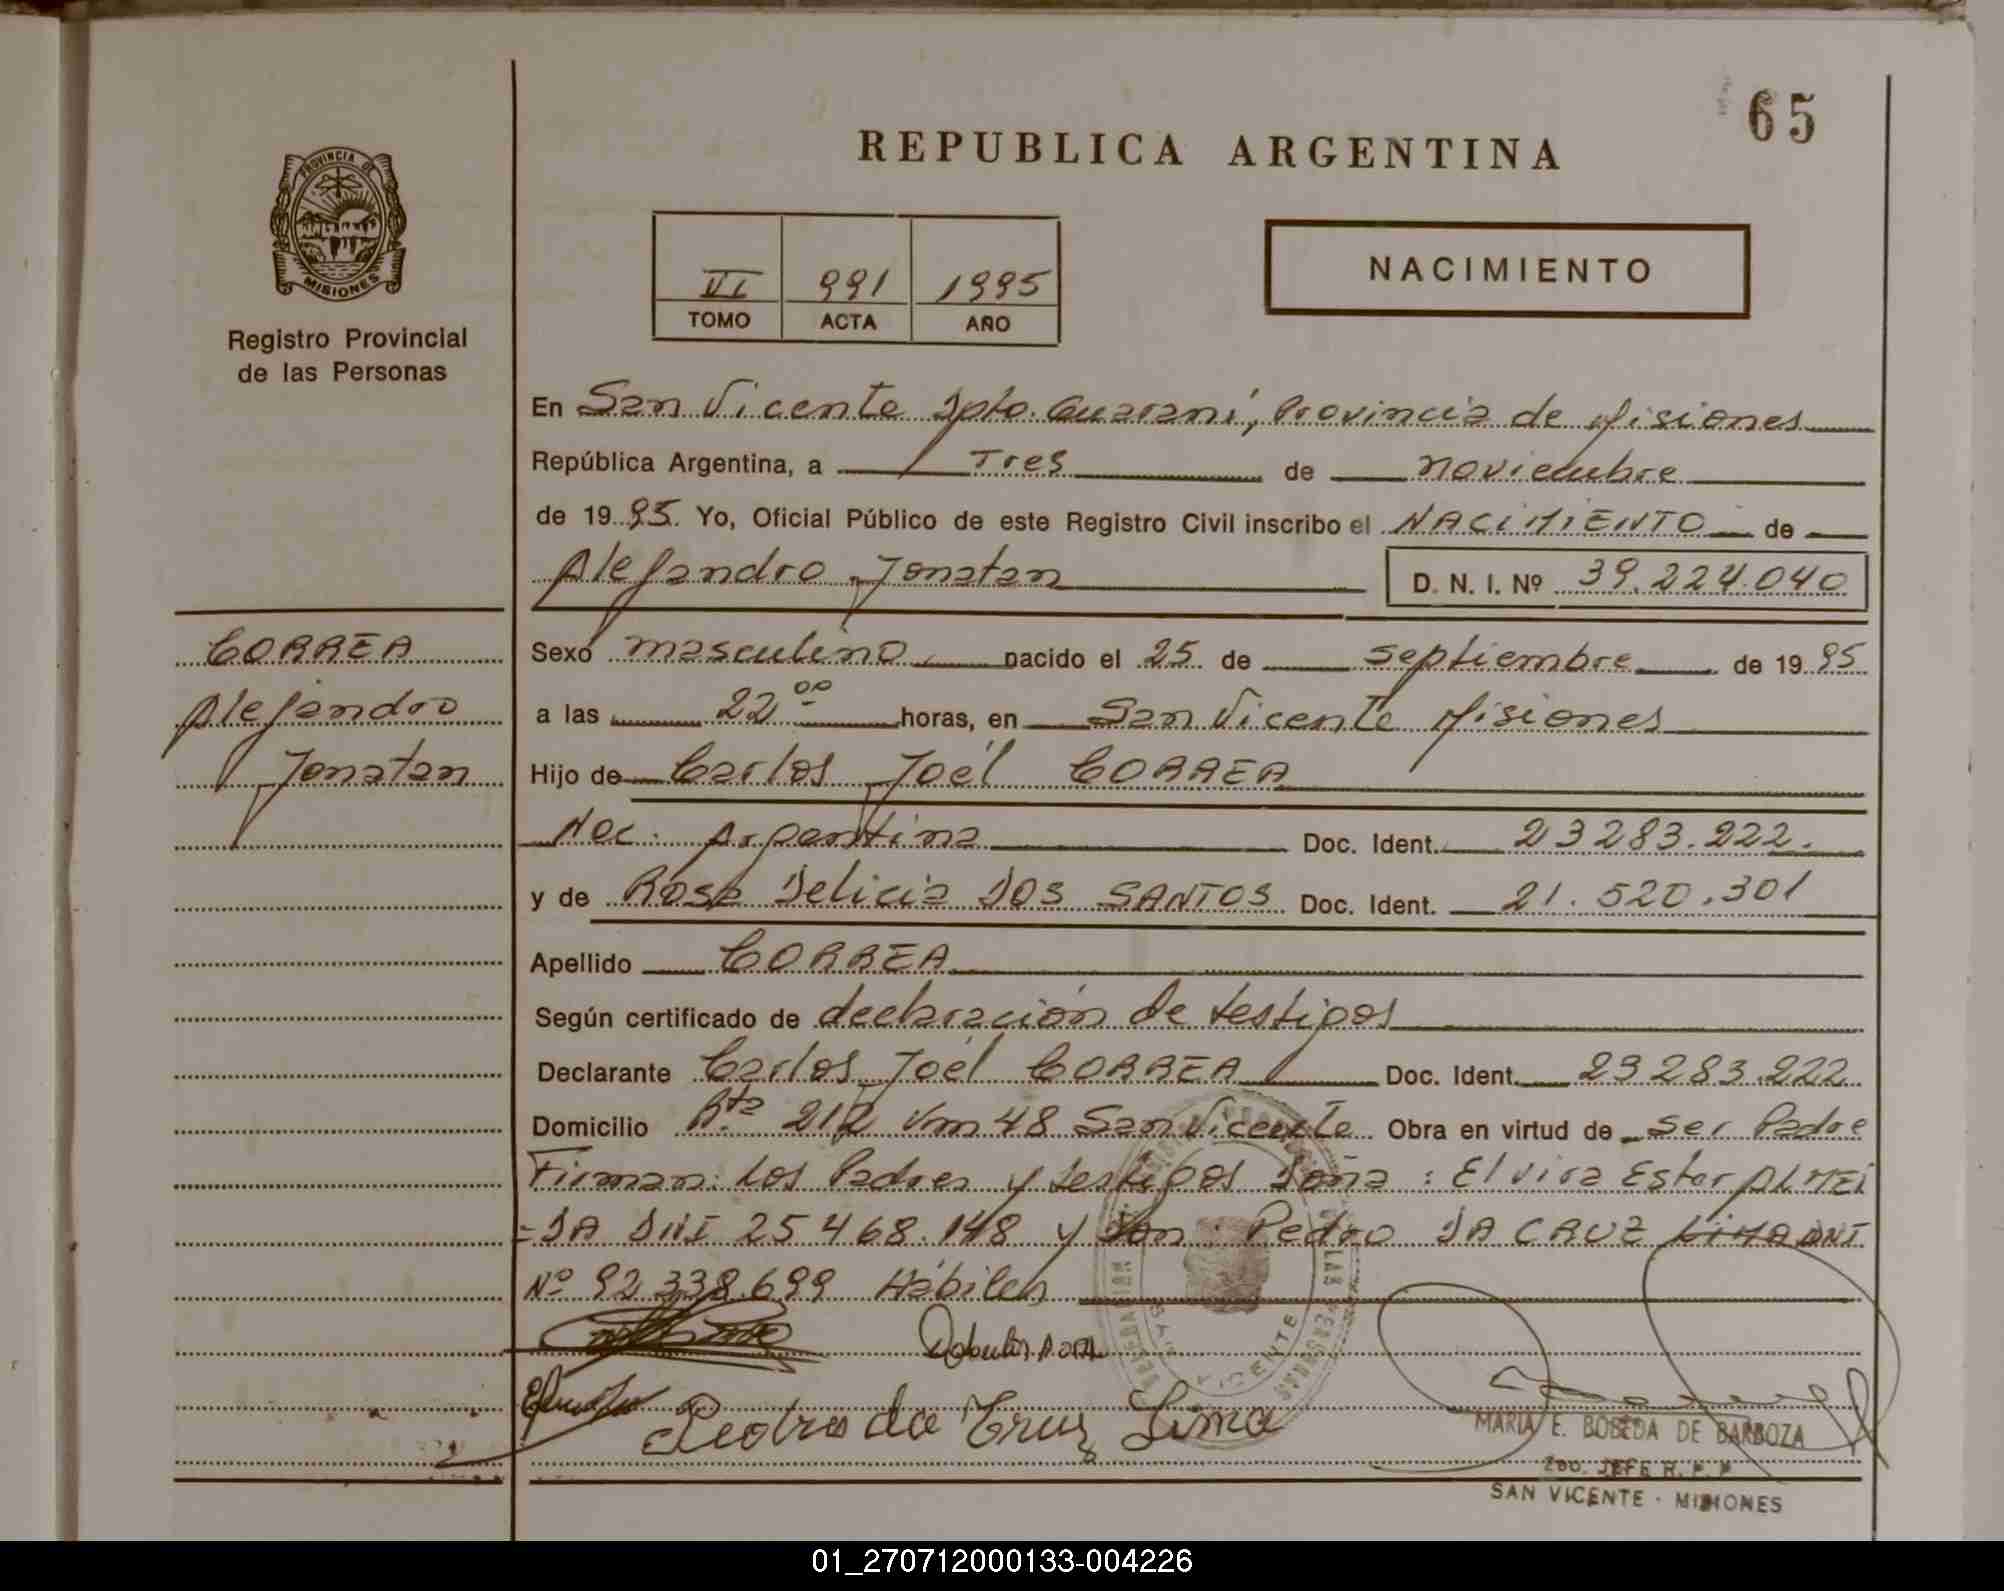 65
REPUBLICA ARGENTINA
PROVINCIA DE
MISIONES
Registro Provincial
de las Personas
VI 991 1995
TOMO ACTA AÑO
NACIMIENTO
En San Vicente Dpto. Guaraní, Provincia de Misiones
República Argentina, a Tres de noviembre
de 1995. Yo, Oficial Público de este Registro Civil inscribo el NACIMIENTO de
Alejandro Jonatan D. N. I. Nº 39.224.040
CORREA
Alejandro
Jonatan
Sexo masculino nacido el 25 de septiembre de 1995
a las 22 00 horas, en San Vicente Misiones
Hijo de Carlos Joél CORREA
Nac: Argentina Doc. Ident. 23283.222.
y de Rosa Delicia DOS SANTOS Doc. Ident. 21.520.301
Apellido CORREA
Según certificado de declaración de testigos
Declarante Carlos Joél CORREA Doc. Ident. 23283.222
Domicilio Rta 212 Km 48 San Vicente Obra en virtud de ser Padre
Firman: Los Padres y testigos Doña: Elvira Ester ALMEI
-DA DNI 25468.148 y Don: Pedro DA CRUZ LIMA DNI
Nº 92.338.699 Hábiles
Pedro da Cruz Lima
MARIA E. BOBEDA DE BARBOZA
2DO. JEFE R. P. P
SAN VICENTE - MISIONES
01_270712000133-004226